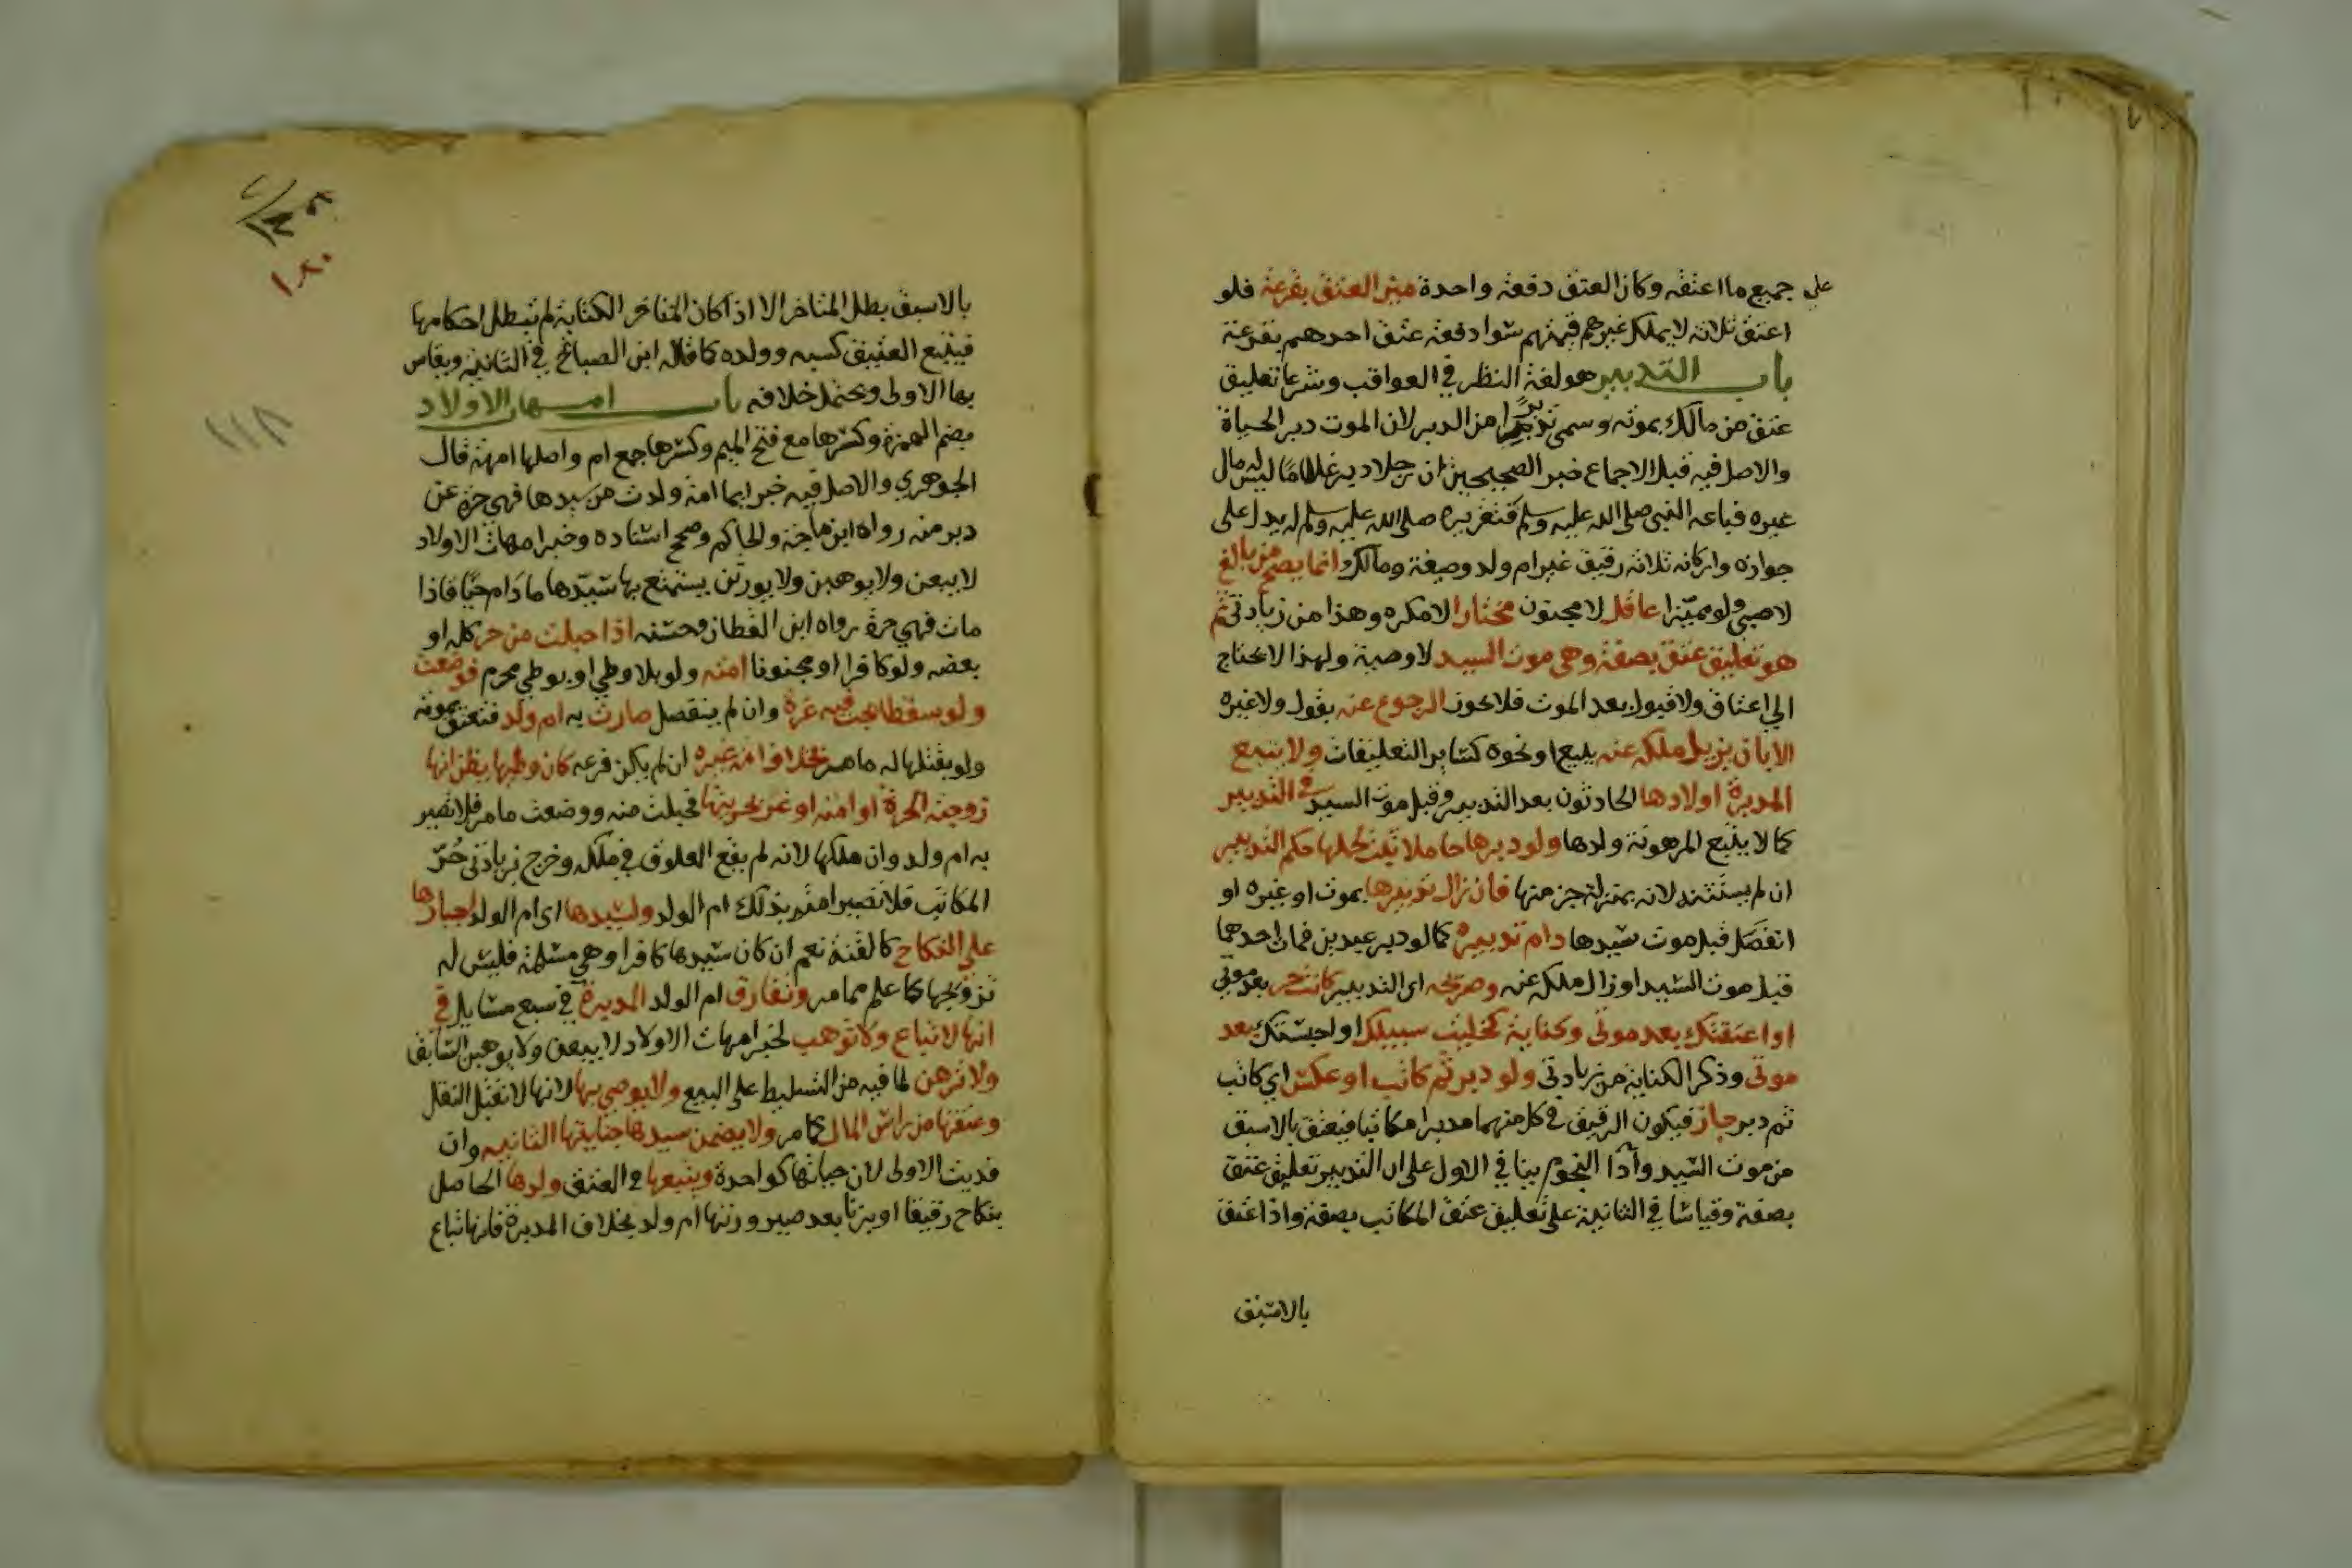 على جميع ما اعتقه وكان العتق دفعة واحدة ميز العتق بقرعة فلو
اعتق ثلاثة لا يملك غيرهم قيمتهم سوا دفعة عتق احدهم بقرعة
باب التدبير هو لغة النظر في العواقب وشرعا تعليق
عتق من مالك بموته وسمي تدبيرا من الدبر لان الموت دبر الحياة
والاصل فيه قبل الاجماع خبر الصحيحين ان رجلا دبر غلاما ليس له مال
غيره فباعه النبي صلى الله عليه وسلم فتقريره صلى الله عليه وسلم له يدل على
جوازه واركانه ثلاثة رقيق غير ام ولد وصيغة ومالك وانما يصح من بالغ
لا صبي ولو مميزا عاقل لا مجنون مختار لا مكره وهذا من زيادتي ثم
هو تعليق عتق بصفة وهي موت السيد لا وصية ولهذا لا يحتاج
الى اعتاق ولا قبول بعد الموت فلا يكون الرجوع عنه بقول ولا غيره
الا بان يزيل ملكه عنه ببيع او نحوه كساير التعليقات ولا يتبع
المدبرة اولادها الحادثون بعد التدبير وقبل موت السيد في التدبير
كما لا يتبع المرهونة ولدها ولو دبرها حاملا ثبت لحملها حكم التدبير
ان لم يستثنه لانه بمنزلة جز منها فان زال تدبيرها بموت او غيره او
انفصل قبل موت سيدها دام تدبيره كما لو دبر عبدين فمات احدهما
قبل موت السيد او زال ملكه عنه وصريحه اى التدبير كانت حر بعد موتي
او اعتقتك بعد موتى وكناية كخليت سبيلك او احبستك بعد
موتى وذكر الكناية من زيادتى ولو دبر ثم كاتب او عكس اي كاتب
ثم دبر جاز فيكون الرقيق في كل منهما مدبرا مكاتبا فيعتق بالاسبق
من موت السيد وآدا النجوم بنا في الاول على ان التدبير تعليق عتق
بصفة وقياسا في الثانية على تعليق عتق المكاتب بصفة واذا عتق
بالاسبق
١٠٨٠
١١٨
بالاسبق بطل المتاخر الا اذا كان المتاخر الكتابة لم تبطل احكامها
فيتبع العتيق كسبه وولده كما قاله ابن الصباغ في الثانية ويقاس
بها الاولى ويحتمل خلافه باب امهات الاولاد
بضم الهمزة وكسرها مع فتح الميم وكسرها جمع ام واصلها امهة قال
الجوهري والاصل فيه خبر ايما امة ولدت من سيدها فهي حرة عن
دبر منه رواه ابن ماجة والحاكم وصحح اسناده وخبر امهات الاولاد
لا يبعن ولا يوهبن ولا يورثن يستمتع بها سيدها ما دام حيا فاذا
مات فهي حرة رواه ابن القطان وحسنه اذا حبلت من حر كله او
بعضه ولو كافرا او مجنونا امته ولو بلا وطي او بوطي محرم فوضعت
ولو سقطا يجب فيه غرة وان لم ينفصل صارت به ام ولد فتعتق بموته
ولو بقتلها له ما مر بخلاف امة غيره ان لم يكن فرعه كان وطيها يظن انها
زوجته الحرة او امته او غر بحريتها فحبلت منه ووضعت ما مر فلا تصير
به ام ولد وان ملكها لانه لم يقع العلوق في ملكه وخرج بزيادتى حر
المكاتب فلا تصير امته بذلك ام الولد ولسيدها اى ام الولد اجبارها
على النكاح كالقنة نعم ان كان سيدها كافرا وهي مسلمة فليس له
تزويجها كما علم مما مر وتفارق ام الولد المدبرة في سبع مسايل في
انها لا تباع ولا توهب لخبر امهات الاولاد لا يبعن ولا يوهبن السابق
ولا ترهن لما فيه من التسليط على البيع ولا يوصي بها لانها لا تقبل النقل
وعتقها من راس المال كما مر ولا يضمن سيدها جنايتها الثانية وان
فديت الاولى لان جناياتها كواحدة ويتبعها في العتق ولدها الحاصل
بنكاح رقيقا او بزنا بعد صيرورتها ام ولد بخلاف المدبرة فانها تباع